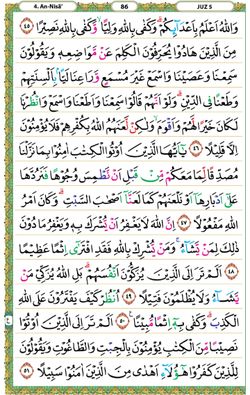 4. An-Nisā' 86 JUZ 5
وَاللَّهُ أَعْلَمُ بِأَعْدَائِكُمْ وَكَفَىٰ بِاللَّهِ وَلِيًّا وَكَفَىٰ بِاللَّهِ نَصِيرًا ٤٥
مِنَ الَّذِينَ هَادُوا يُحَرِّفُونَ الْكَلِمَ عَنْ مَوَاضِعِهِ وَيَقُولُونَ
سَمِعْنَا وَعَصَيْنَا وَاسْمَعْ غَيْرَ مُسْمَعٍ وَرَاعِنَا لَيًّا بِأَلْسِنَتِهِمْ
وَطَعْنًا فِي الدِّينِ وَلَوْ أَنَّهُمْ قَالُوا سَمِعْنَا وَأَطَعْنَا وَاسْمَعْ وَانْظُرْنَا
لَكَانَ خَيْرًا لَهُمْ وَأَقْوَمَ وَلَٰكِنْ لَعَنَهُمُ اللَّهُ بِكُفْرِهِمْ فَلَا يُؤْمِنُونَ
إِلَّا قَلِيلًا ٤٦ يَا أَيُّهَا الَّذِينَ أُوتُوا الْكِتَابَ آمِنُوا بِمَا نَزَّلْنَا
مُصَدِّقًا لِمَا مَعَكُمْ مِنْ قَبْلِ أَنْ نَطْمِسَ وُجُوهًا فَنَرُدَّهَا
عَلَىٰ أَدْبَارِهَا أَوْ نَلْعَنَهُمْ كَمَا لَعَنَّا أَصْحَابَ السَّبْتِ وَكَانَ أَمْرُ
اللَّهِ مَفْعُولًا ٤٧ إِنَّ اللَّهَ لَا يَغْفِرُ أَنْ يُشْرَكَ بِهِ وَيَغْفِرُ مَا دُونَ
ذَٰلِكَ لِمَنْ يَشَاءُ وَمَنْ يُشْرِكْ بِاللَّهِ فَقَدِ افْتَرَىٰ إِثْمًا عَظِيمًا
٤٨ أَلَمْ تَرَ إِلَى الَّذِينَ يُزَكُّونَ أَنْفُسَهُمْ بَلِ اللَّهُ يُزَكِّي مَنْ
يَشَاءُ وَلَا يُظْلَمُونَ فَتِيلًا ٤٩ انْظُرْ كَيْفَ يَفْتَرُونَ عَلَى اللَّهِ
الْكَذِبَ وَكَفَىٰ بِهِ إِثْمًا مُبِينًا ٥٠ أَلَمْ تَرَ إِلَى الَّذِينَ أُوتُوا
نَصِيبًا مِنَ الْكِتَابِ يُؤْمِنُونَ بِالْجِبْتِ وَالطَّاغُوتِ وَيَقُولُونَ
لِلَّذِينَ كَفَرُوا هَٰؤُلَاءِ أَهْدَىٰ مِنَ الَّذِينَ آمَنُوا سَبِيلًا ٥١